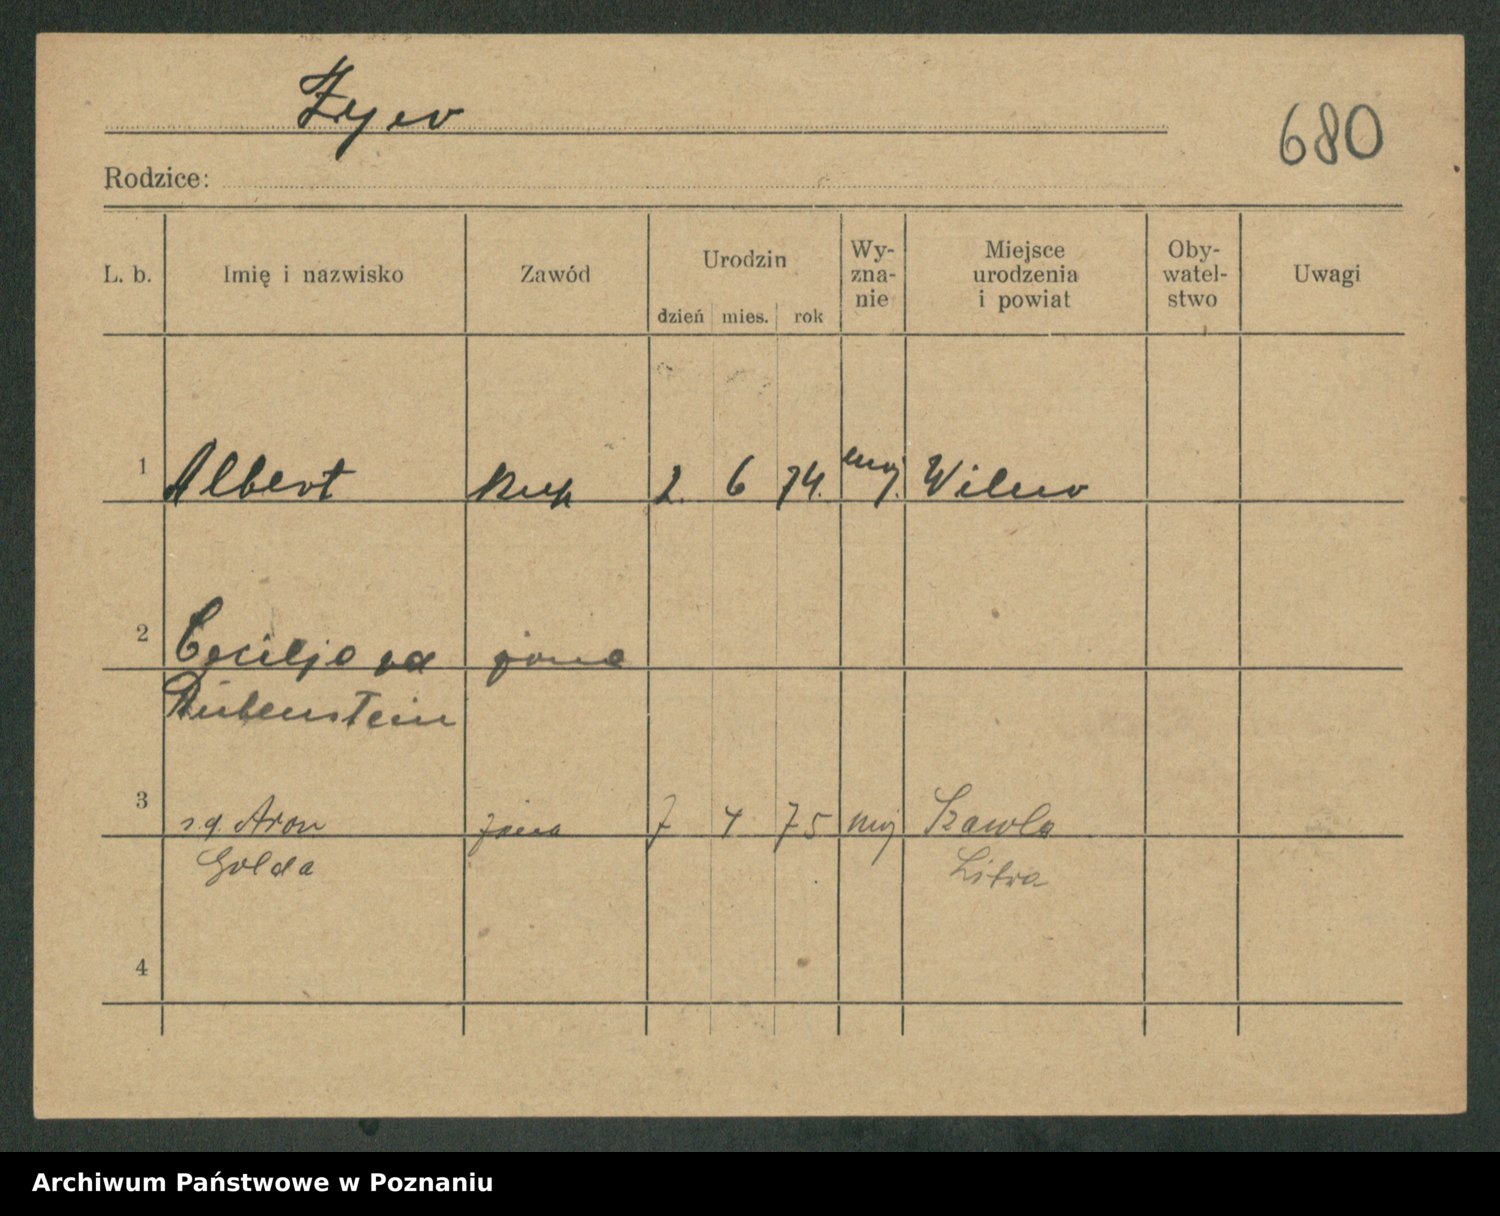 680
Rodzice:
L. b. Imię i nazwisko Zawód Urodzin dzień mies. rok Wy- zna- nie Miejsce urodzenia i powiat Oby- watel- stwo Uwagi
1 Albert kup 2. 6 74. moj. Wilno
2 Cecilja żona
Rubenstein
3 Aron żona 7 4 75 moj Szawla
Golda Litwa
4
Archiwum Państwowe w Poznaniu